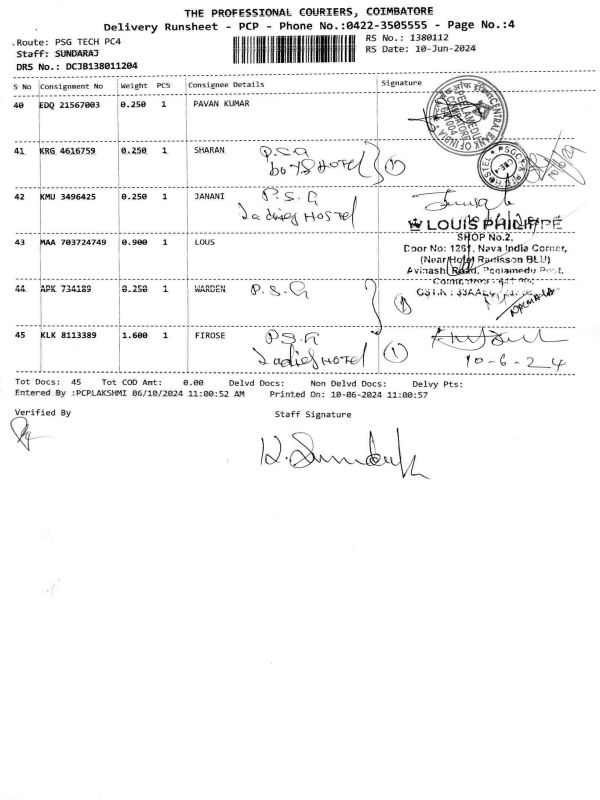 THE PROFESSIONAL COURIERS, COIMBATORE
Delivery Runsheet - PCP - Phone No.:0422-3505555 - Page No.:4
.Route: PSG TECH PC4
RS No.: 1380112
Staff: SUNDARAJ
RS Date: 10-Jun-2024
DRS No.: DCJB138011204
S No Consignment No Weight PCS Consignee Details Signature
40 EDQ 21567003 0.250 1 PAVAN KUMAR
CENTRAL BANK OF INDIA
41 KRG 4616759 0.250 1 SHARAN P.S.G
boys HOTEL 1
HOSTEL PSGCT
42 KMU 3496425 0.250 1 JANANI P.S.G
Ladies HOSTEL
LOUIS PHILIPPE
SHOP No.2,
43 MAA 703724749 0.900 1 LOUS
Door No: 1261, Nava India Corner,
(Near Hotel Radisson BLU)
Avinashi Road, Peelamedu Post,
Coimbatore
44 APK 734189 0.250 1 WARDEN P.S.G
45 KLK 8113389 1.600 1 FIROSE P.S.G
Ladies HOTEL 1
10-6-24
Tot Docs: 45 Tot COD Amt: 0.00 Delvd Docs: Non Delvd Docs: Delvy Pts:
Entered By :PCPLAKSHMI 06/10/2024 11:00:52 AM Printed On: 10-06-2024 11:00:57
Verified By
Staff Signature